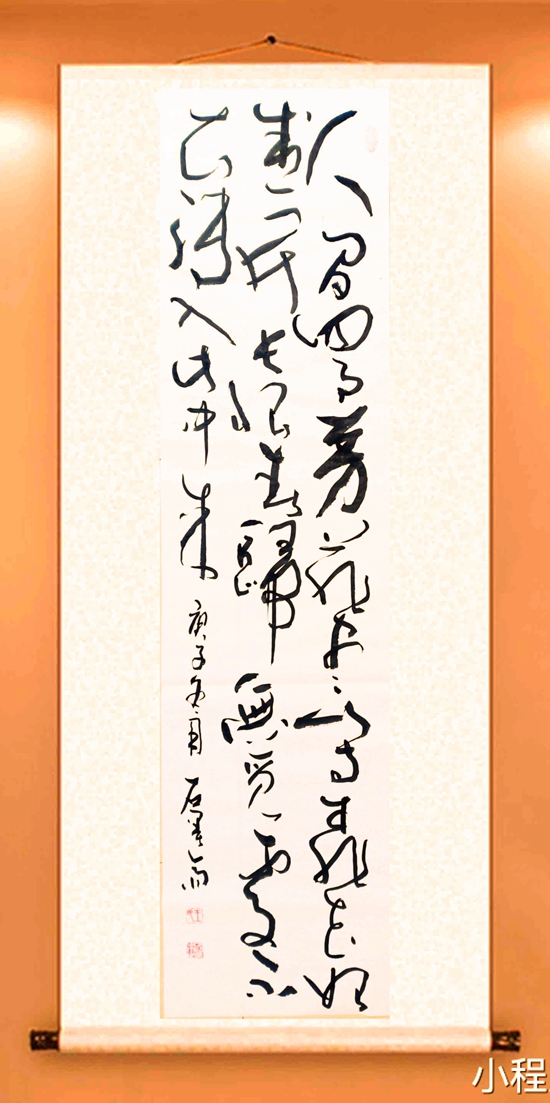 人間四月芳菲盡山寺桃花始
盛開長恨春歸無覓處不
知轉入此中來 庚子
小程